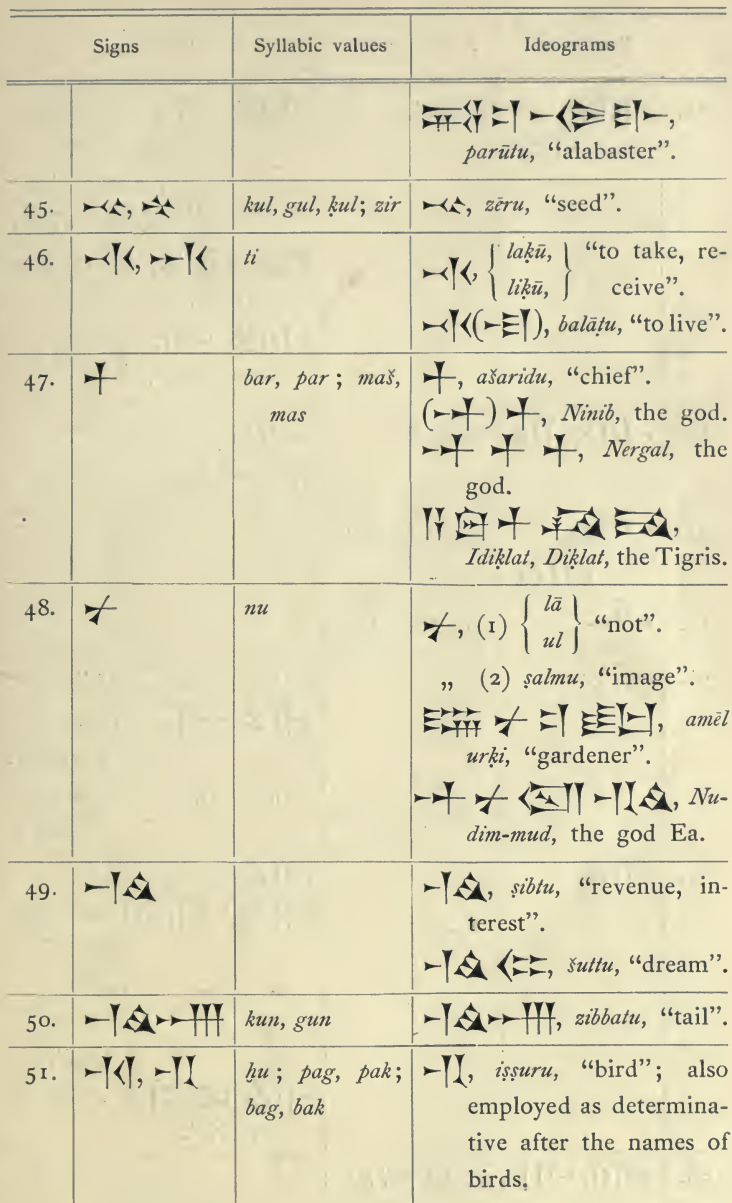 Signs	Syllabic values	Ideograms
𒉌𒌓 𒄑 𒋓 𒃲,
parūtu, “alabaster”.
45. 𒆰, 𒆰	kul, gul, ḳul; zir	𒆰, zēru, “seed”.
46. 𒋾, 𒋾	ti	𒋾, { laḳū, } “to take, re-
{ liḳū, } ceive”.
𒋾(𒆷), balāṭu, “to live”.
47. 𒈦	bar, par ; maš,	𒈦, ašaridu, “chief”.
mas	(𒀭) 𒈦, Ninib, the god.
𒀭 𒈦 𒈦, Nergal, the
god.
𒀀 𒇉 𒈦 𒄘 𒃼,
Idiḳlat, Diḳlat, the Tigris.
48. 𒉡	nu	𒉡, (1) { lā } “not”.
{ ul }
„ (2) ṣalmu, “image”.
𒇽 𒉡 𒄑 𒊬, amēl
urḳi, “gardener”.
𒀭 𒉡 𒁶 𒄷𒄭, Nu-
dim-mud, the god Ea.
49. 𒈧	𒈧, ṣibtu, “revenue, in-
terest”.
𒈧 𒈪, šuttu, “dream”.
50. 𒆲	kun, gun	𒆲, zibbatu, “tail”.
51. 𒄷, 𒄷	ḫu ; pag, pak;	𒄷, iṣṣuru, “bird”; also
bag, bak	employed as determina-
tive after the names of
birds.